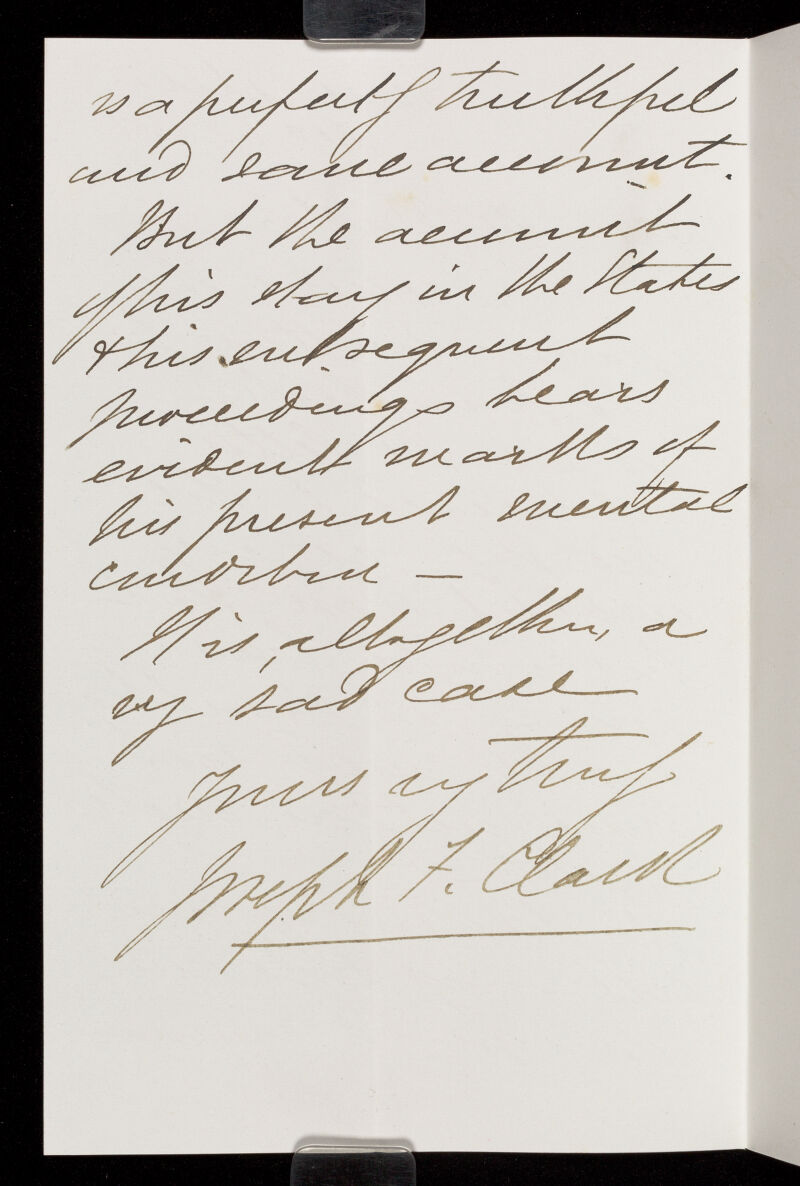 is a perfectly truthful
and sane account.
But the account
of his stay in the States
& his subsequent
proceedings bears
evident marks of
his present mental
condition —
It is, altogether, a
vy sad case
Yours vy truly
Joseph F. Clark